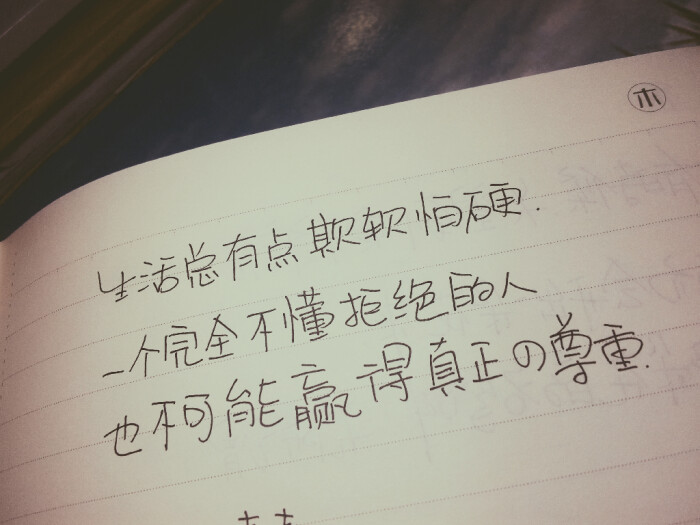 木
生活总有点欺软怕硬.
一个完全不懂拒绝的人
也不可能赢得真正の尊重.